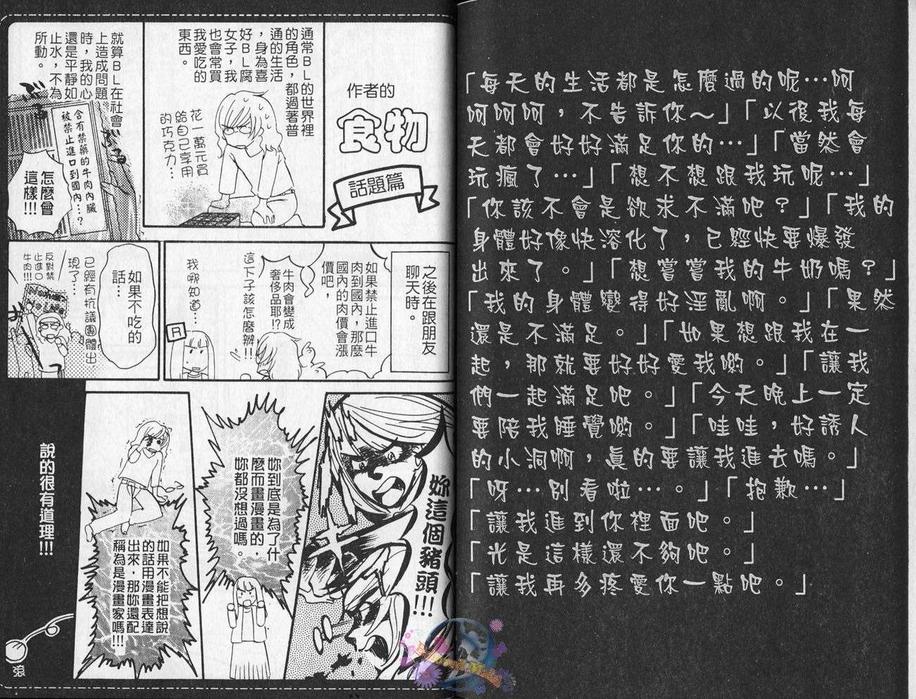 「每天的生活都是怎麼過的呢…呵
呵呵呵，不告訴你～」「以後我每
天都會好好滿足你的…」「當然會
玩瘋了…」「想不想跟我玩呢…」
「你該不會是欲求不滿吧？」「我的
身體好像快溶化了，已經快要爆發
出來了。」「想嘗嘗我的牛奶嗎？」
「我的身體變得好淫亂啊。」「果然
還是不滿足。」「如果想跟我在一
起，那就要好好愛我喲。」「讓我
們一起滿足吧。」「今天晚上一定
要陪我睡覺喲。」「哇哇，好誘人
的小洞啊，真的要讓我進去嗎。」
「呀…別看啦…。」「抱歉…」
「讓我進到你裡面吧。」
「光是這樣還不夠吧。」
「讓我再多疼愛你一點吧。」
作者的
食物
話題篇
通常BL的世界裡
的角色，都過著普
通的生活
，身為喜
好BL腐
女子，我
也會常買
我愛吃的
東西。
花一萬元買
給自己享用
的巧克力…
就算BL在社會
上造成問題
時，我的心
還是平靜如
止水，不為
所動。
含有禁藥的牛肉內臟
被禁止進口到國內…？
怎麼會
這樣!!!
之後在跟朋友
聊天時。
如果禁止進口牛
肉到國內，那麼
國內的肉價會漲
價吧，
牛肉會變成
奢侈品耶!?
這下子該怎麼辦!!
我哪知道…
如果不吃的
話…
已經有抗議團體出
現了…
反對禁
止進口
牛肉!!!
妳這個豬頭!!!
妳到底是為了什
麼而畫漫畫的，
妳都沒想過嗎。
如果不能把想說
的話用漫畫表達
出來，那妳還配
稱為是漫畫家嗎!!!
說的很有道理!!!